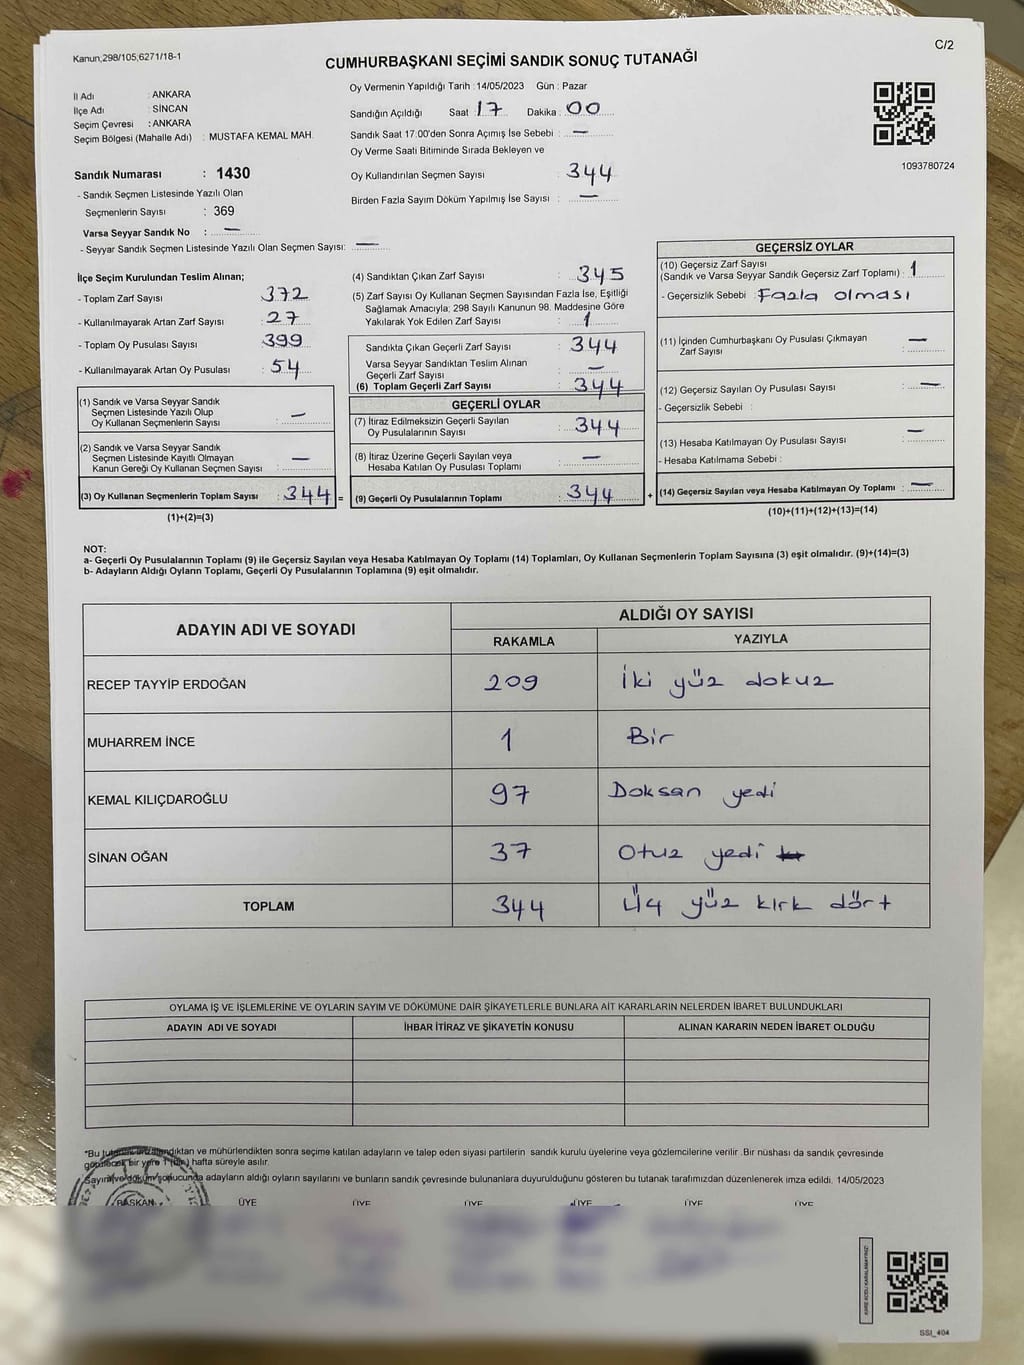 Kanun;298/105;6271/18-1
C/2
CUMHURBAŞKANI SEÇİMİ SANDIK SONUÇ TUTANAĞI
İl Adı : ANKARA
İlçe Adı : SİNCAN
Seçim Çevresi : ANKARA
Seçim Bölgesi (Mahalle Adı) : MUSTAFA KEMAL MAH.
Oy Vermenin Yapıldığı Tarih : 14/05/2023 Gün : Pazar
Sandığın Açıldığı Saat : 17 Dakika : 00
Sandık Saat 17:00'den Sonra Açımış İse Sebebi : —
Oy Verme Saati Bitiminde Sırada Bekleyen ve
Oy Kullandırılan Seçmen Sayısı : 344
Birden Fazla Sayım Döküm Yapılmış İse Sayısı : —
1093780724
Sandık Numarası : 1430
- Sandık Seçmen Listesinde Yazılı Olan
Seçmenlerin Sayısı : 369
Varsa Seyyar Sandık No : —
- Seyyar Sandık Seçmen Listesinde Yazılı Olan Seçmen Sayısı: —
İlçe Seçim Kurulundan Teslim Alınan;
- Toplam Zarf Sayısı : 372
- Kullanılmayarak Artan Zarf Sayısı : 27
- Toplam Oy Pusulası Sayısı : 399
- Kullanılmayarak Artan Oy Pusulası : 54
(1) Sandık ve Varsa Seyyar Sandık
Seçmen Listesinde Yazılı Olup
Oy Kullanan Seçmenlerin Sayısı : —
(2) Sandık ve Varsa Seyyar Sandık
Seçmen Listesinde Kayıtlı Olmayan
Kanun Gereği Oy Kullanan Seçmen Sayısı : —
(3) Oy Kullanan Seçmenlerin Toplam Sayısı : 344 =
(1)+(2)=(3)
(4) Sandıktan Çıkan Zarf Sayısı : 345
(5) Zarf Sayısı Oy Kullanan Seçmen Sayısından Fazla İse, Eşitliği
Sağlamak Amacıyla; 298 Sayılı Kanunun 98. Maddesine Göre
Yakılarak Yok Edilen Zarf Sayısı : 1
Sandıkta Çıkan Geçerli Zarf Sayısı : 344
Varsa Seyyar Sandıktan Teslim Alınan
Geçerli Zarf Sayısı : —
(6) Toplam Geçerli Zarf Sayısı : 344
GEÇERLİ OYLAR
(7) İtiraz Edilmeksizin Geçerli Sayılan
Oy Pusulalarının Sayısı : 344
(8) İtiraz Üzerine Geçerli Sayılan veya
Hesaba Katılan Oy Pusulası Toplamı : —
(9) Geçerli Oy Pusulalarının Toplamı : 344 +
GEÇERSİZ OYLAR
(10) Geçersiz Zarf Sayısı
(Sandık ve Varsa Seyyar Sandık Geçersiz Zarf Toplamı) : 1
- Geçersizlik Sebebi : Fazla olması
(11) İçinden Cumhurbaşkanı Oy Pusulası Çıkmayan
Zarf Sayısı : —
(12) Geçersiz Sayılan Oy Pusulası Sayısı : —
- Geçersizlik Sebebi :
(13) Hesaba Katılmayan Oy Pusulası Sayısı : —
- Hesaba Katılmama Sebebi :
(14) Geçersiz Sayılan veya Hesaba Katılmayan Oy Toplamı : —
(10)+(11)+(12)+(13)=(14)
NOT:
a- Geçerli Oy Pusulalarının Toplamı (9) ile Geçersiz Sayılan veya Hesaba Katılmayan Oy Toplamı (14) Toplamları, Oy Kullanan Seçmenlerin Toplam Sayısına (3) eşit olmalıdır. (9)+(14)=(3)
b- Adayların Aldığı Oyların Toplamı, Geçerli Oy Pusulalarının Toplamına (9) eşit olmalıdır.
ADAYIN ADI VE SOYADI
ALDIĞI OY SAYISI
RAKAMLA YAZIYLA
RECEP TAYYİP ERDOĞAN 209 İki yüz dokuz
MUHARREM İNCE 1 Bir
KEMAL KILIÇDAROĞLU 97 Doksan yedi
SİNAN OĞAN 37 Otuz yedi
TOPLAM 344 Üç yüz kırk dört
OYLAMA İŞ VE İŞLEMLERİNE VE OYLARIN SAYIM VE DÖKÜMÜNE DAİR ŞİKAYETLERLE BUNLARA AİT KARARLARIN NELERDEN İBARET BULUNDUKLARI
ADAYIN ADI VE SOYADI İHBAR İTİRAZ VE ŞİKAYETİN KONUSU ALINAN KARARIN NEDEN İBARET OLDUĞU
*Bu tutanak imzalandıktan ve mühürlendikten sonra seçime katılan adayların ve talep eden siyasi partilerin sandık kurulu üyelerine veya gözlemcilerine verilir .Bir nüshası da sandık çevresinde
görülecek bir yere 1 (bir) hafta süreyle asılır.
Sayım ve döküm sonucunda adayların aldığı oyların sayılarını ve bunların sandık çevresinde bulunanlara duyurulduğunu gösteren bu tutanak tarafımızdan düzenlenerek imza edildi. 14/05/2023
BAŞKAN ÜYE ÜYE ÜYE ÜYE ÜYE ÜYE
SSİ_404